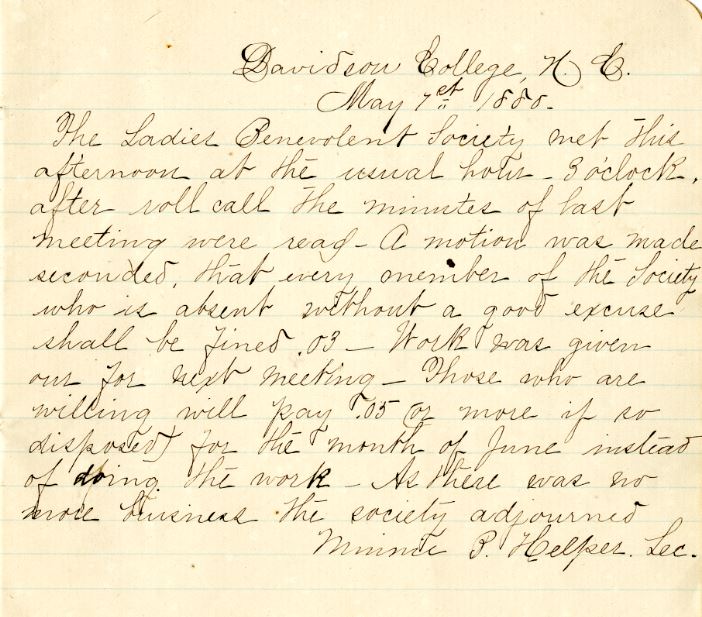 Davidson College, N. C.
May 7st 1880.
The Ladies Benevolent Society met this
afternoon at the usual hour - 3 o'clock,
after roll call the minutes of last
meeting were read - A motion was made
seconded, that every member of the Society
who is absent without a good excuse
shall be fined .03 - Work was given
our for next meeting - Those who are
willing will pay .05 (or more if so
disposed) for the month of June instead
of doing the work - As there was no
more business the society adjourned
Minnie P. Helper. Sec.